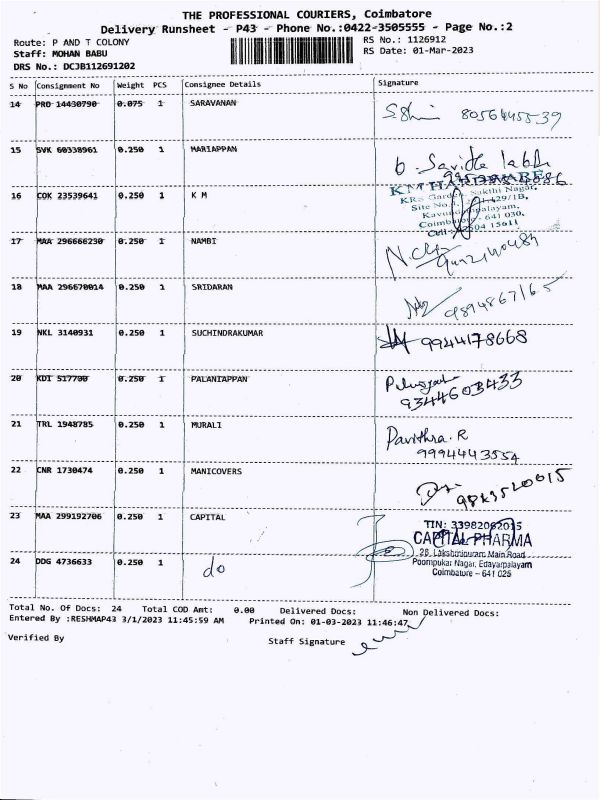 THE PROFESSIONAL COURIERS, Coimbatore
Delivery Runsheet - P43 - Phone No.:0422-3505555 - Page No.:2
Route: P AND T COLONY
RS No.: 1126912
Staff: MOHAN BABU
RS Date: 01-Mar-2023
DRS No.: DCJB112691202
S No Consignment No Weight PCS Consignee Details Signature
14 PRD 14430790 0.075 1 SARAVANAN
8056445539
15 SVK 60338961 0.250 1 MARIAPPAN
KM HARDWARE
KRs Garden, Sakthi Nagar,
16 COK 23539641 0.250 1 K M
Coimbatore - 641 030.
17 MAA 296666230 0.250 1 NAMBI
18 MAA 296670014 0.250 1 SRIDARAN
9894867165
19 NKL 3140931 0.250 1 SUCHINDRAKUMAR
9944178668
20 KDT 517700 0.250 1 PALANIAPPAN
9344603433
21 TRL 1948785 0.250 1 MURALI
Pavithra. R
9994443554
22 CNR 1730474 0.250 1 MANICOVERS
23 MAA 299192706 0.250 1 CAPITAL
TIN: 33982062015
CAPITAL PHARMA
28, Lakshmipuram Main Road
24 DDG 4736633 0.250 1 do
Poompukar Nagar, Edayarpalayam
Coimbatore - 641 025
Total No. Of Docs: 24 Total COD Amt: 0.00 Delivered Docs: Non Delivered Docs:
Entered By :RESHMAP43 3/1/2023 11:45:59 AM Printed On: 01-03-2023 11:46:47
Verified By Staff Signature